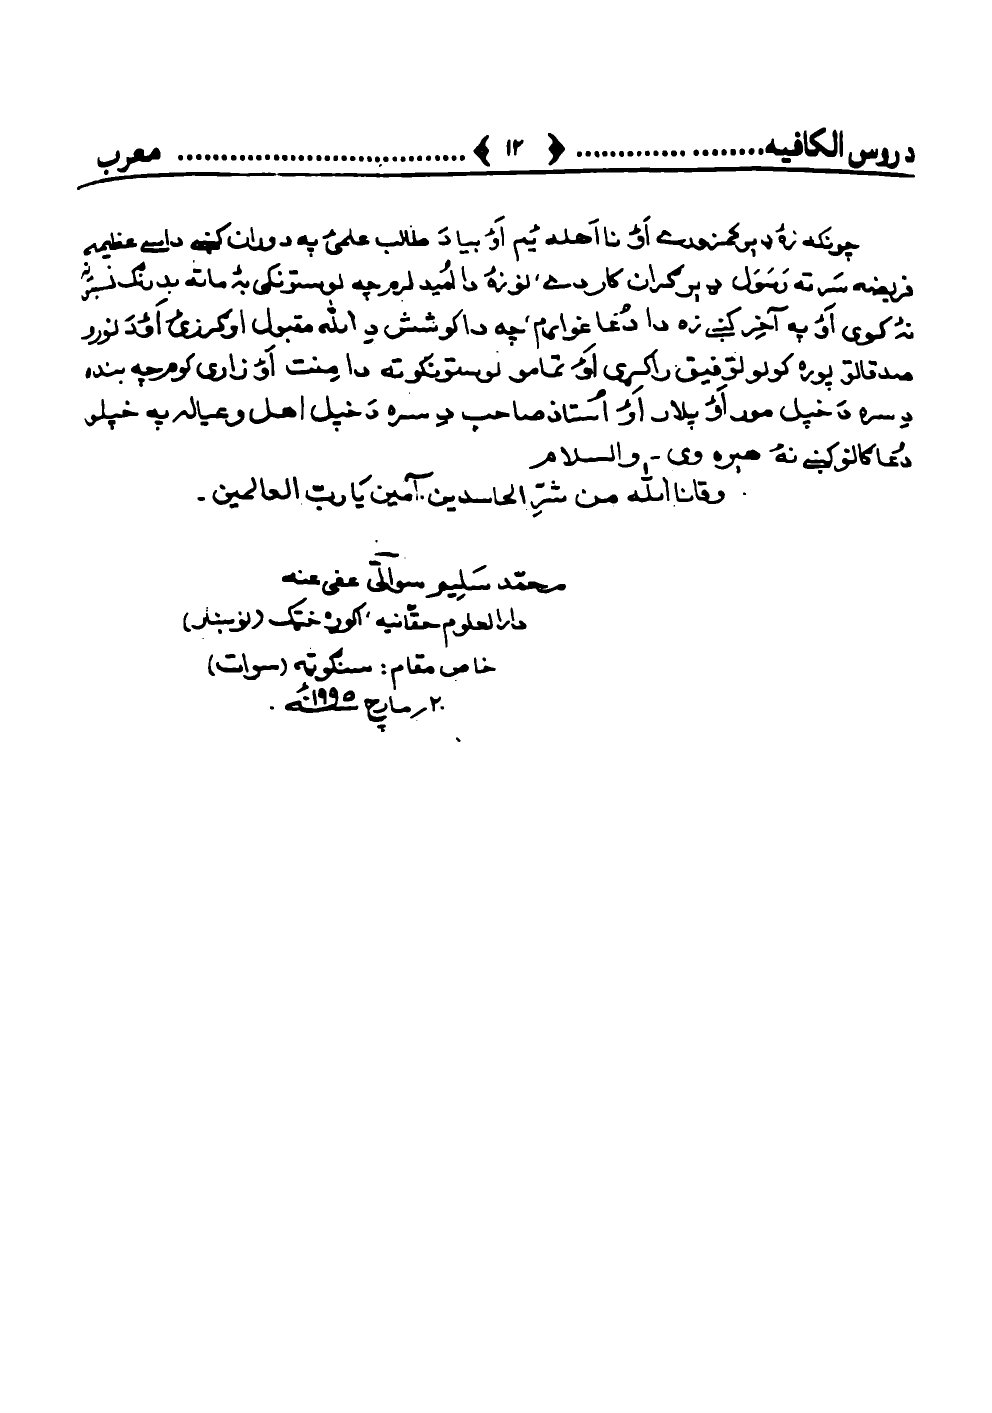 دروس الکافیه ..................... ﴿ ١٢ ﴾ ................................. معرب
چونکه زۀ ډېر کمزورے اَوُ نا اَهله یُم اَوُ بیا دَ طالب علمۍ په دوران کښے داسے عظیمے
فریضه سَر ته رَسَول ډېر ګران کار دے، نو زۀ دا اُمید لرم چه لوستونکی بۀ ما ته بد رنګ نسبتُونه
نۀ کوی اَوُ په آخر کښے زه دا دُعا غواړم، چه دا کوشش دِ الله مقبول اوګرزئ اَوُ دَ نورو
صدقاتو پوره کولو توفیق راکړی اَوُ تمامو لوستونکو ته دا مِنت اَوُ زاری کوم چه بنده
دِ سره دَ خپل مور اَوُ پلار اَوُ اُستاذ صاحب دِ سره دَ خپل اهل و عیاله په خپلو
دُعاکانو کښے نۀ هېره وی - والسلام
وقانا الله من شرِّ الحاسدین. آمین یَا ربّ العالمین ۔
محمّد سَلِیم سواتیؔ عفی عنه
دارالعلوم حقّانیه، اکوړه خټک (نوښار)
خاص مقام: سنګوټه (سوات)
٢٠؍ مارچ ١٩٩٥ ئه